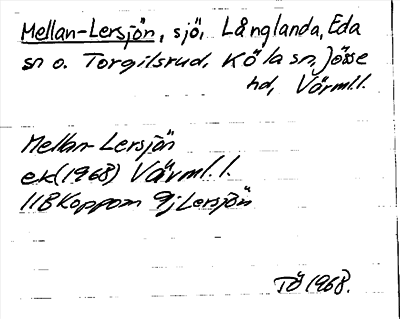 Mellan-Lersjön, sjö, Långlanda, Eda
sn o. Torgilsrud, Köla sn, Jösse
hd, Värml.l.
Mellan-Lersjön
ek(1968) Värml.l.
11B Koppom 9j Lersjön
TÖ 1968.